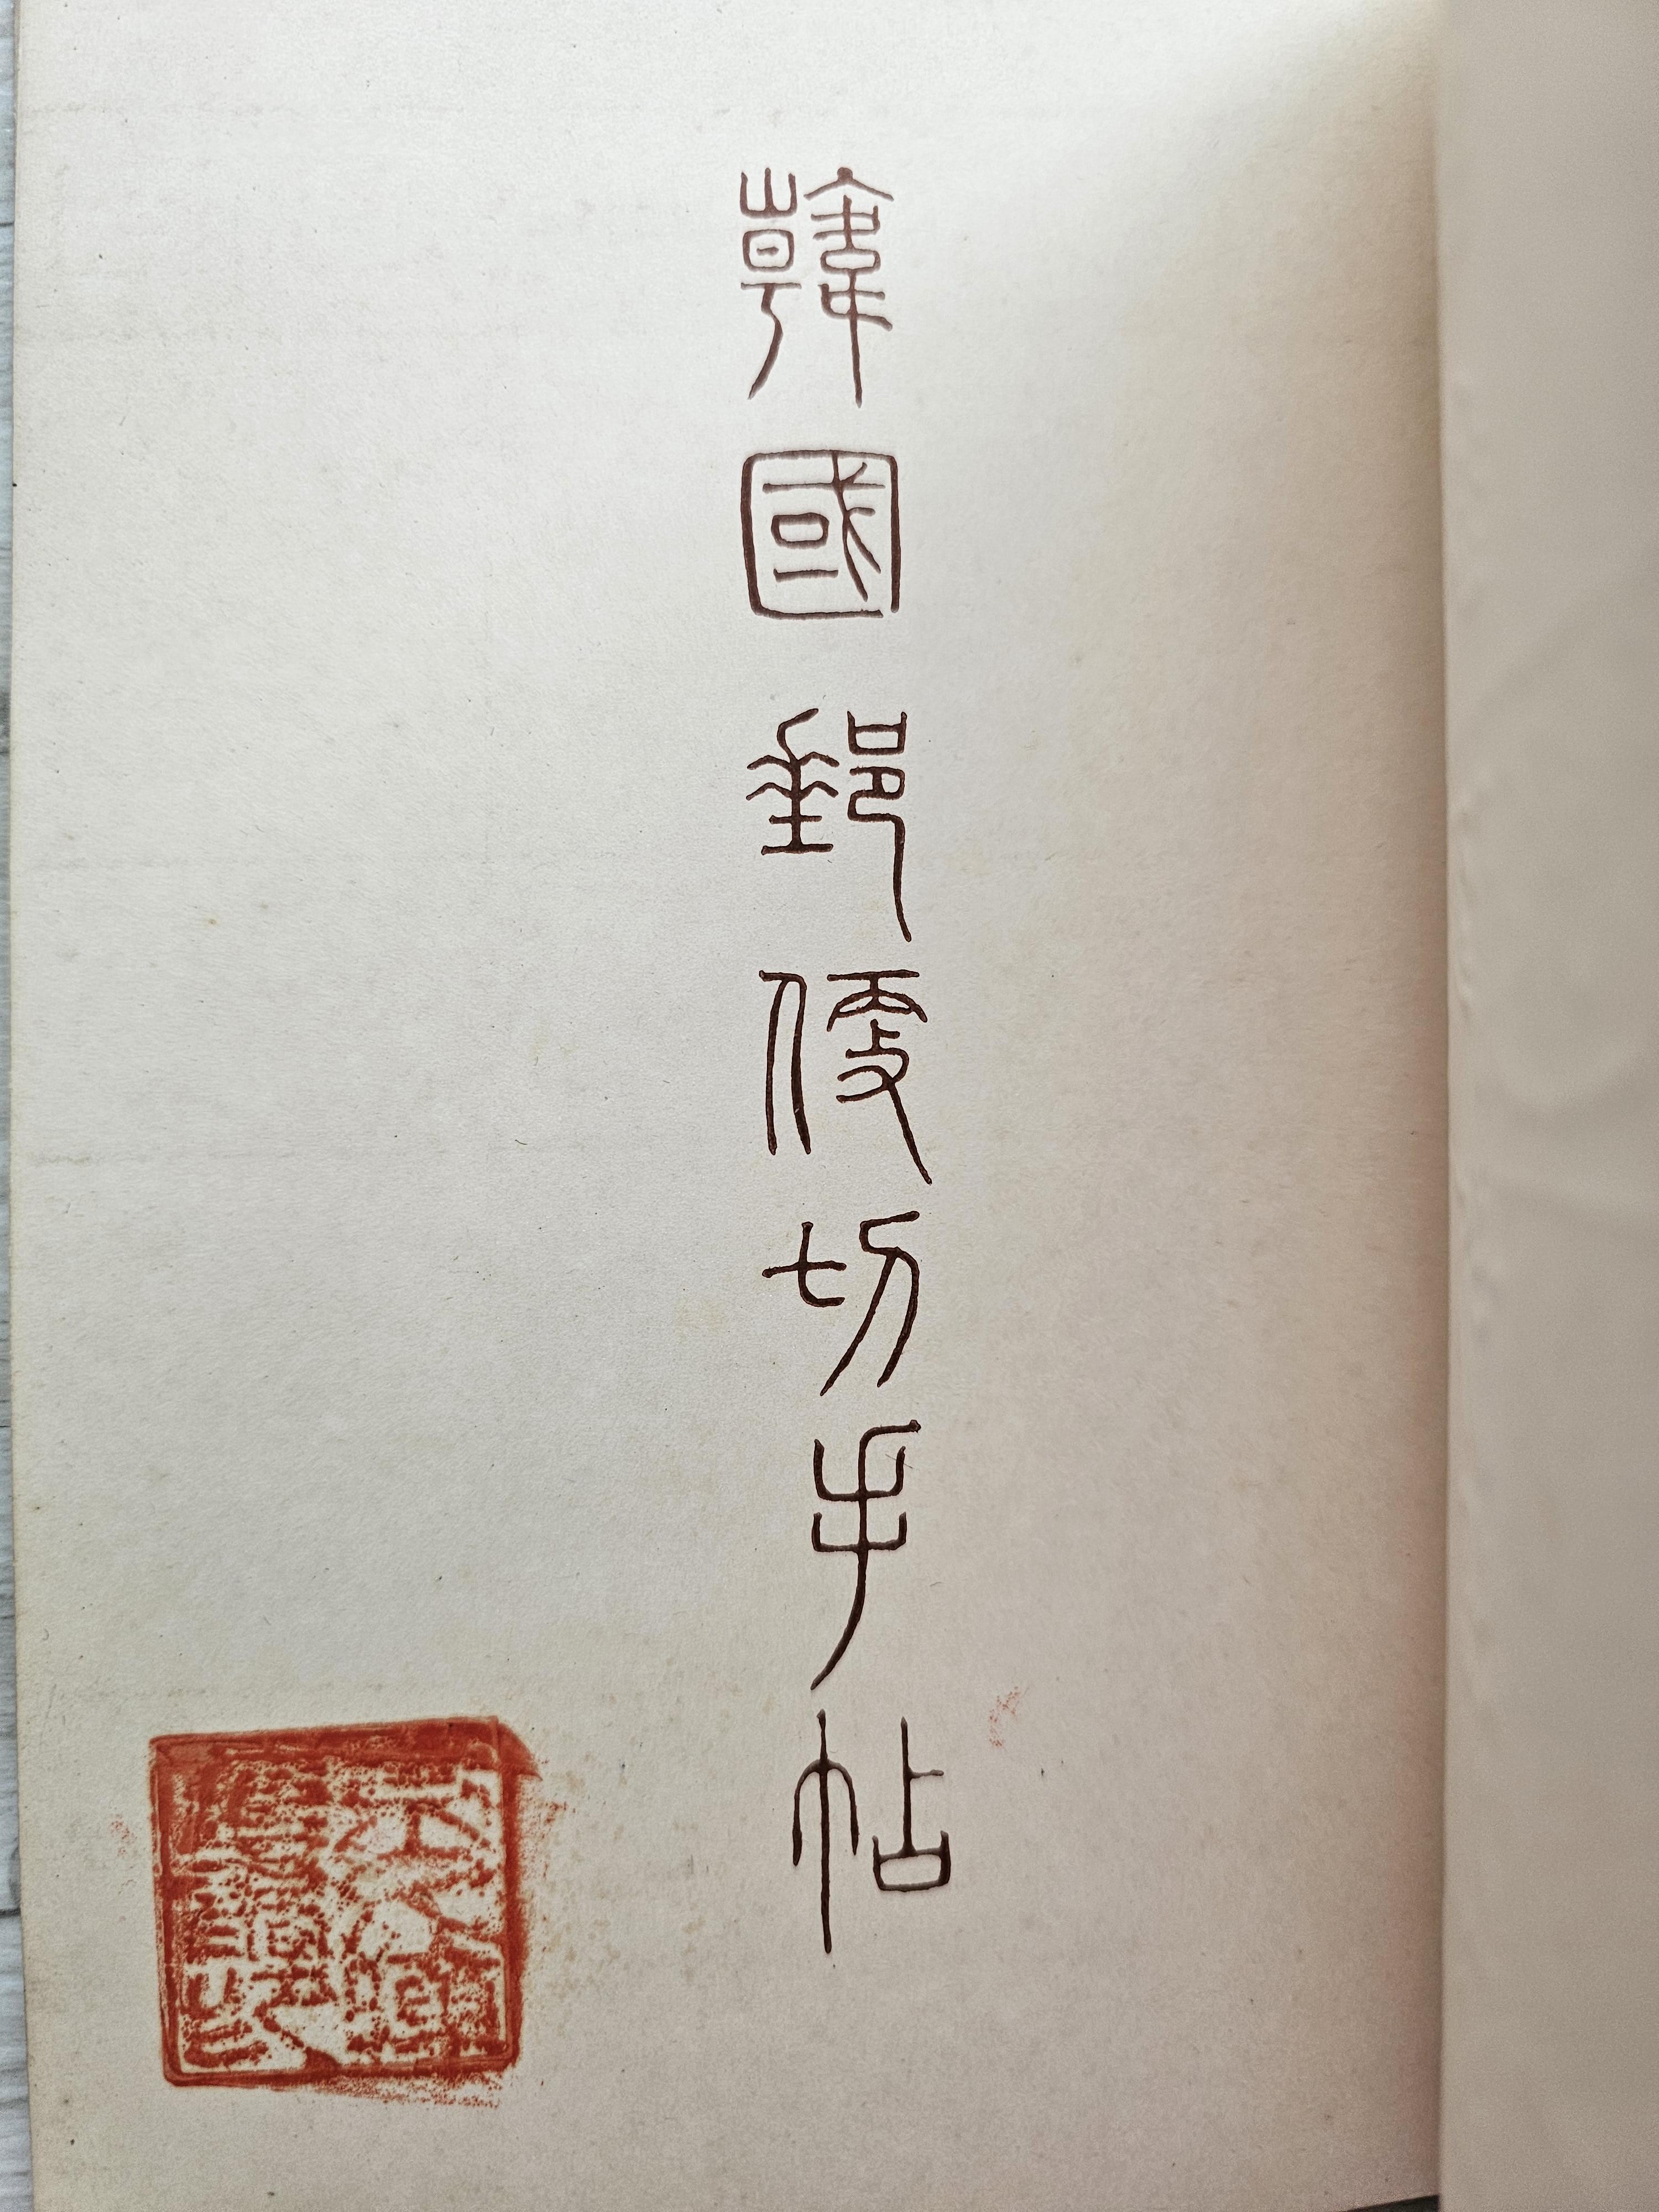 韓國郵便切手帖